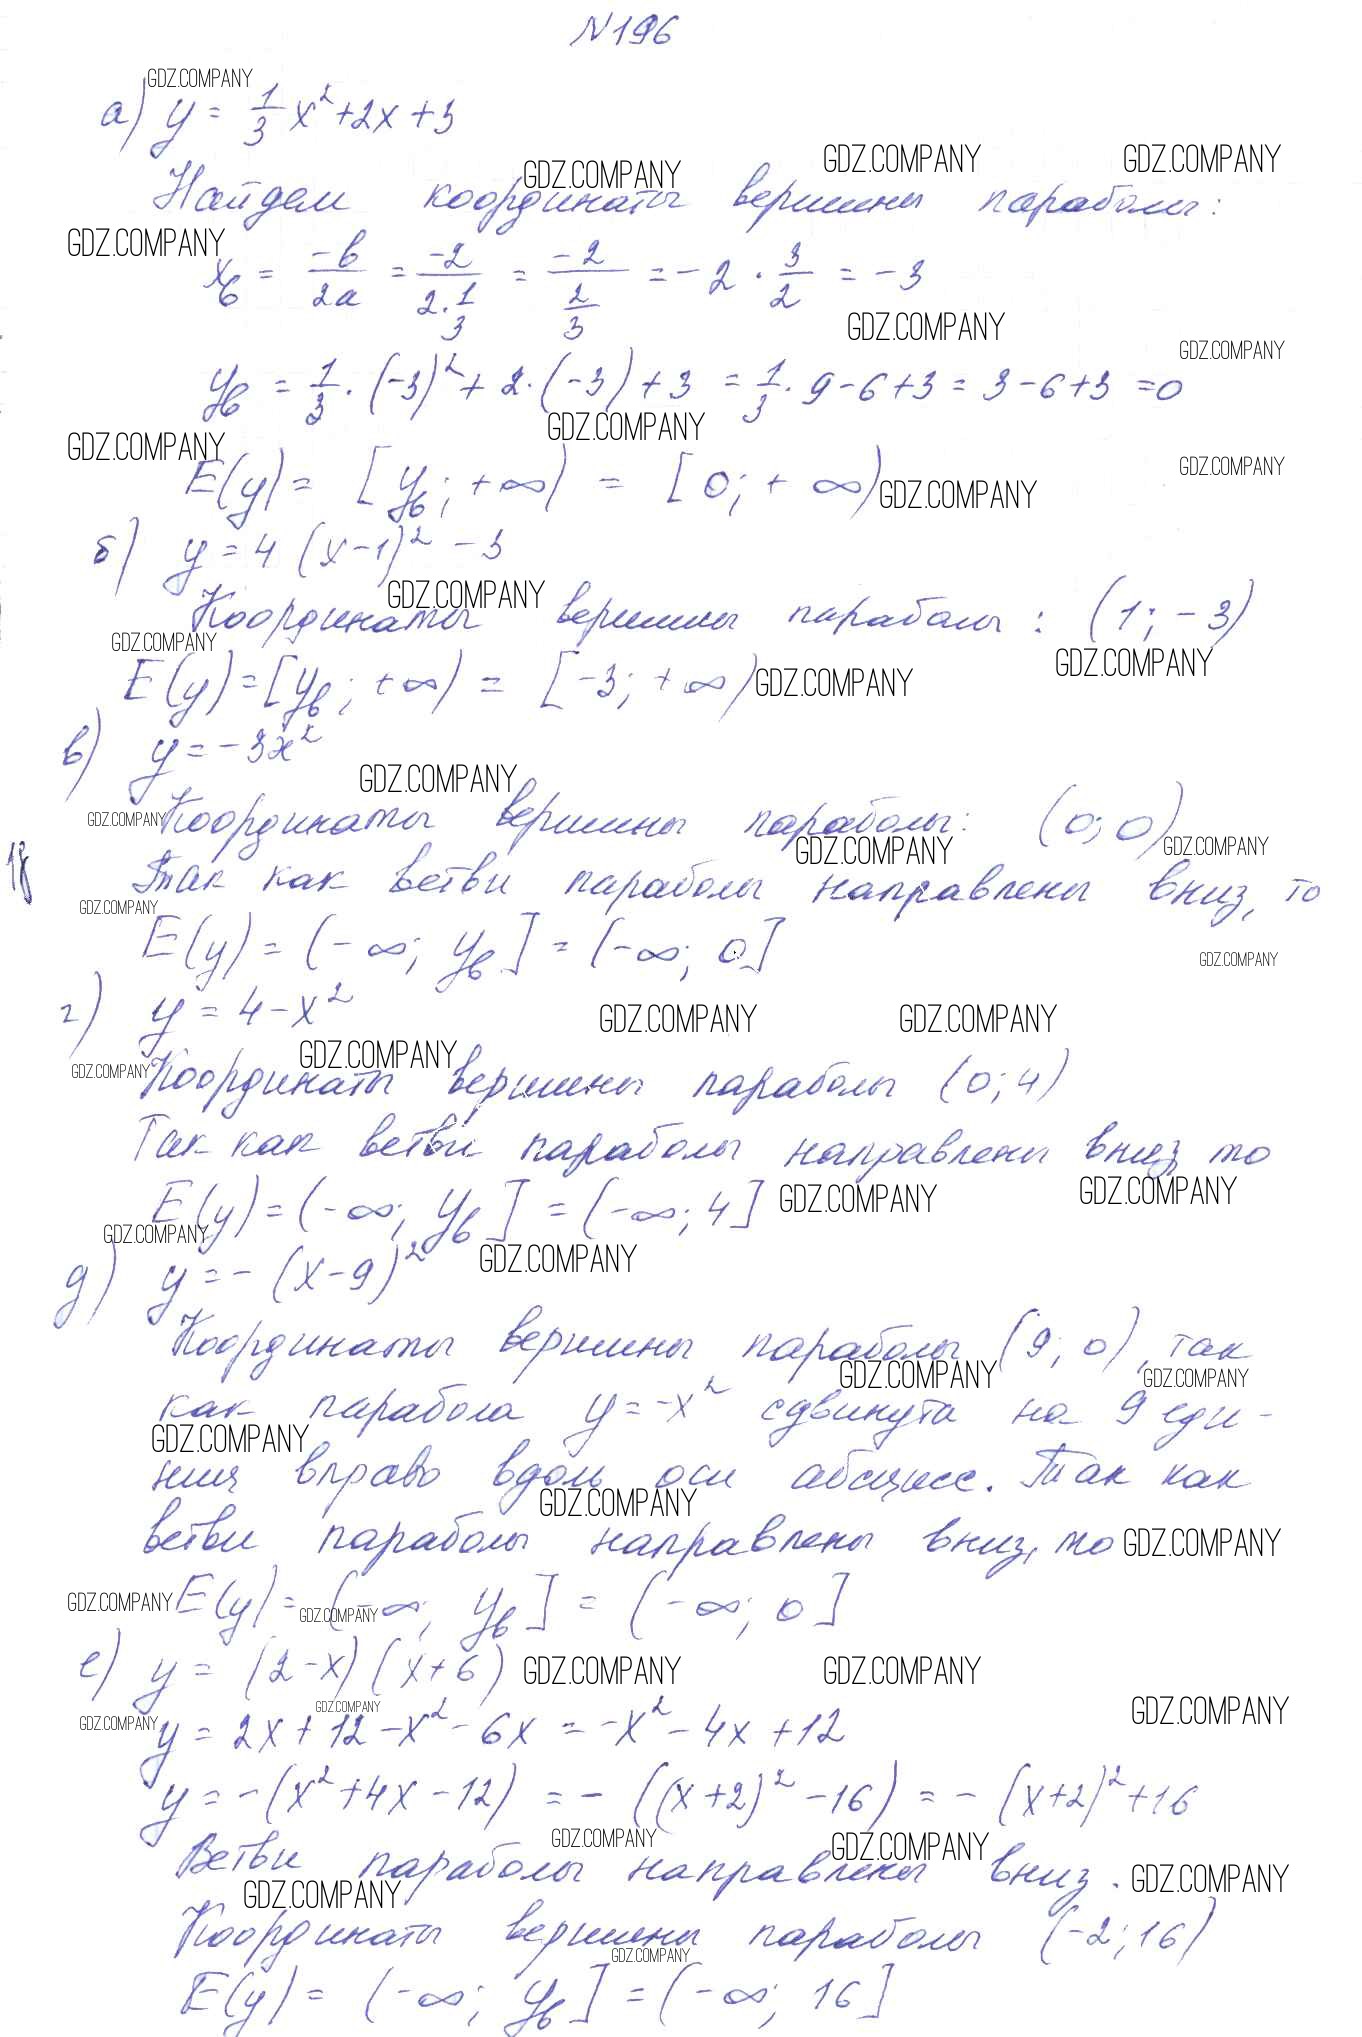 N196
GDZ.COMPANY
а) y = 1/3 x² + 2x + 3
GDZ.COMPANY GDZ.COMPANY GDZ.COMPANY
Найдем координаты вершины параболы:
GDZ.COMPANY
xв = -b/2a = -2/(2·1/3) = -2/(2/3) = -2 · 3/2 = -3
GDZ.COMPANY
GDZ.COMPANY
yв = 1/3 · (-3)² + 2·(-3) + 3 = 1/3 · 9 - 6 + 3 = 3 - 6 + 3 = 0
GDZ.COMPANY
GDZ.COMPANY GDZ.COMPANY
E(y) = [yв; +∞) = [0; +∞) GDZ.COMPANY
б) y = 4(x-1)² - 3
GDZ.COMPANY
Координаты вершины параболы: (1; -3)
GDZ.COMPANY GDZ.COMPANY
E(y) = [yв; +∞) = [-3; +∞) GDZ.COMPANY
в) y = -3x²
GDZ.COMPANY
GDZ.COMPANY Координаты вершины параболы: (0; 0)
GDZ.COMPANY GDZ.COMPANY
18 Так как ветви параболы направлены вниз, то
GDZ.COMPANY
E(y) = (-∞; yв] = (-∞; 0]
GDZ.COMPANY
г) y = 4 - x²
GDZ.COMPANY GDZ.COMPANY
GDZ.COMPANY
GDZ.COMPANY Координаты вершины параболы (0; 4)
Так как ветви параболы направлены вниз, то
E(y) = (-∞; yв] = (-∞; 4] GDZ.COMPANY GDZ.COMPANY
GDZ.COMPANY
д) y = -(x-9)² GDZ.COMPANY
Координаты вершины параболы (9; 0), так
GDZ.COMPANY GDZ.COMPANY
как парабола y = -x² сдвинута на 9 еди-
GDZ.COMPANY
ниц вправо вдоль оси абсцисс. Так как
GDZ.COMPANY
ветви параболы направлены вниз, то GDZ.COMPANY
GDZ.COMPANY E(y) = (-∞; yв] = (-∞; 0]
GDZ.COMPANY
е) y = (2-x)(x+6) GDZ.COMPANY GDZ.COMPANY
GDZ.COMPANY GDZ.COMPANY
GDZ.COMPANY y = 2x + 12 - x² - 6x = -x² - 4x + 12
y = -(x² + 4x - 12) = -((x+2)² - 16) = -(x+2)² + 16
GDZ.COMPANY GDZ.COMPANY
Ветви параболы направлены вниз. GDZ.COMPANY
GDZ.COMPANY
Координаты вершины параболы (-2; 16)
GDZ.COMPANY
E(y) = (-∞; yв] = (-∞; 16]